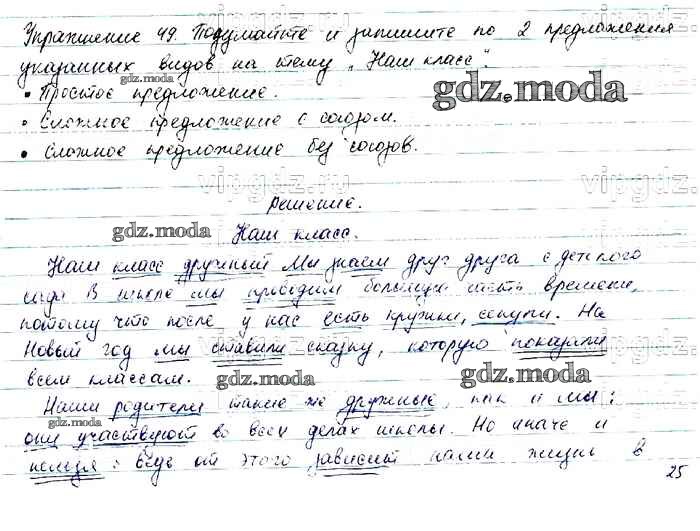 Упражнение 49. Подумайте и запишите по 2 предложения
указанных видов на тему „Наш класс".
• Простое предложение.
• Сложное предложение с союзом.
• Сложное предложение без союзов.
gdz.moda
gdz.moda
vipgdz.ru
Решение.
gdz.moda
Наш класс.
Наш класс дружный. Мы знаем друг друга с детского
сада. В школе мы проводим большую часть времени,
потому что после у нас есть кружки, секции. На
Новый год мы ставили сказку, которую показали
всем классам.
gdz.moda
gdz.moda
Наши родители такие же дружные, как и мы:
они участвуют во всех делах школы. Но иначе и
нельзя: ведь от этого зависит наша жизнь в
25